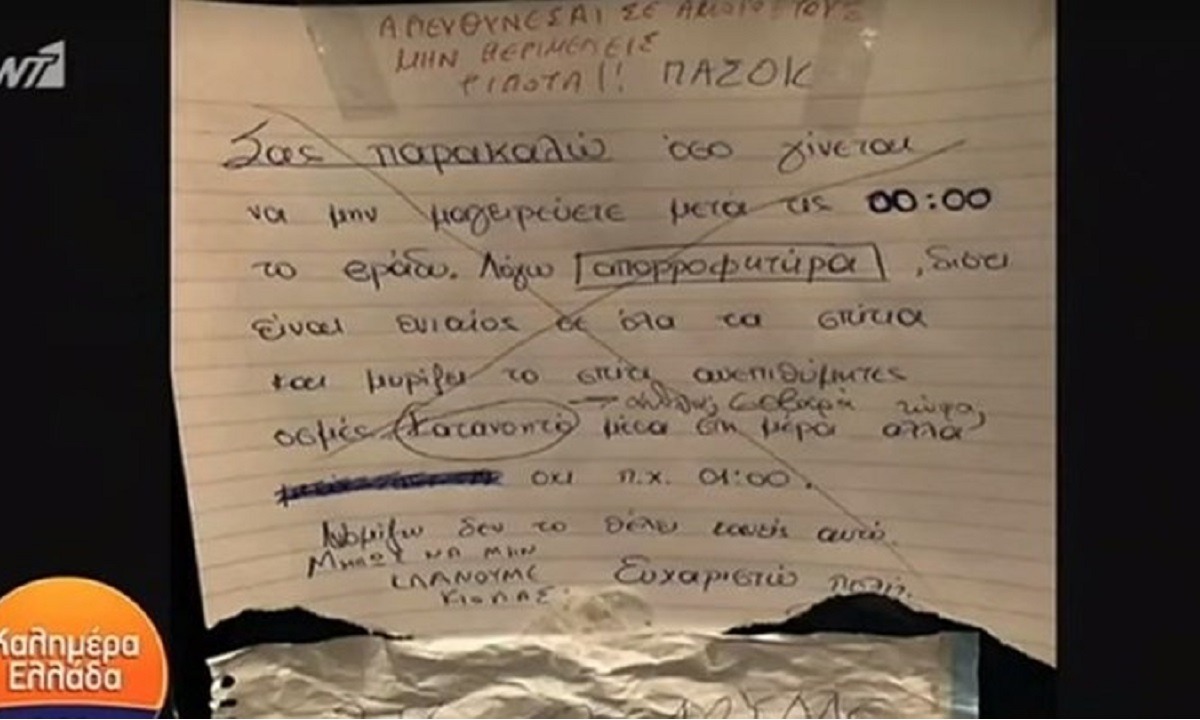 ΑΠΕΥΘΥΝΕΣΑΙ ΣΕ ΑΜΟΡΦΩΤΟΥΣ
ΜΗΝ ΠΕΡΙΜΕΝΕΙΣ
ΤΙΠΟΤΑ!! ΠΑΣΟΚ
ΑΝΤ1
Σας παρακαλώ όσο γίνεται
να μην μαγειρεύετε μετά τις 00:00
το βράδυ. Λόγω απορροφητήρα, διότι
είναι ενιαίος σε όλα τα σπίτια
και μυρίζει το σπίτι ανεπιθύμητες
σοβαρά τώρα;
οσμές. Κατανοητό μέσα στη μέρα αλλά
οχι π.χ. 01:00.
Νομίζω δεν το θέλει κανείς αυτό.
ΜΗΠΩΣ ΝΑ ΜΗΝ
ΚΛΑΝΟΥΜΕ
ΚΙΟΛΑΣ;
Ευχαριστώ πολύ.
Καλημέρα
Ελλάδα